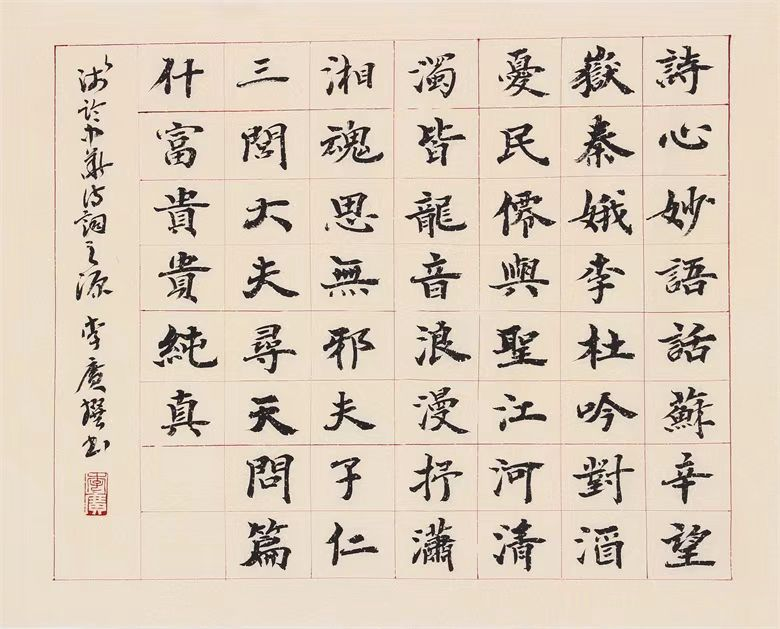 詩心妙語話蘇辛望
嶽秦娥李杜吟對酒
憂民僊與聖江河清
濁皆龍音浪漫抒瀟
湘魂思無邪夫子仁
三閭大夫尋天問篇
什富貴貴純真
淺論中華詩詞之源 李廣撰書
李廣